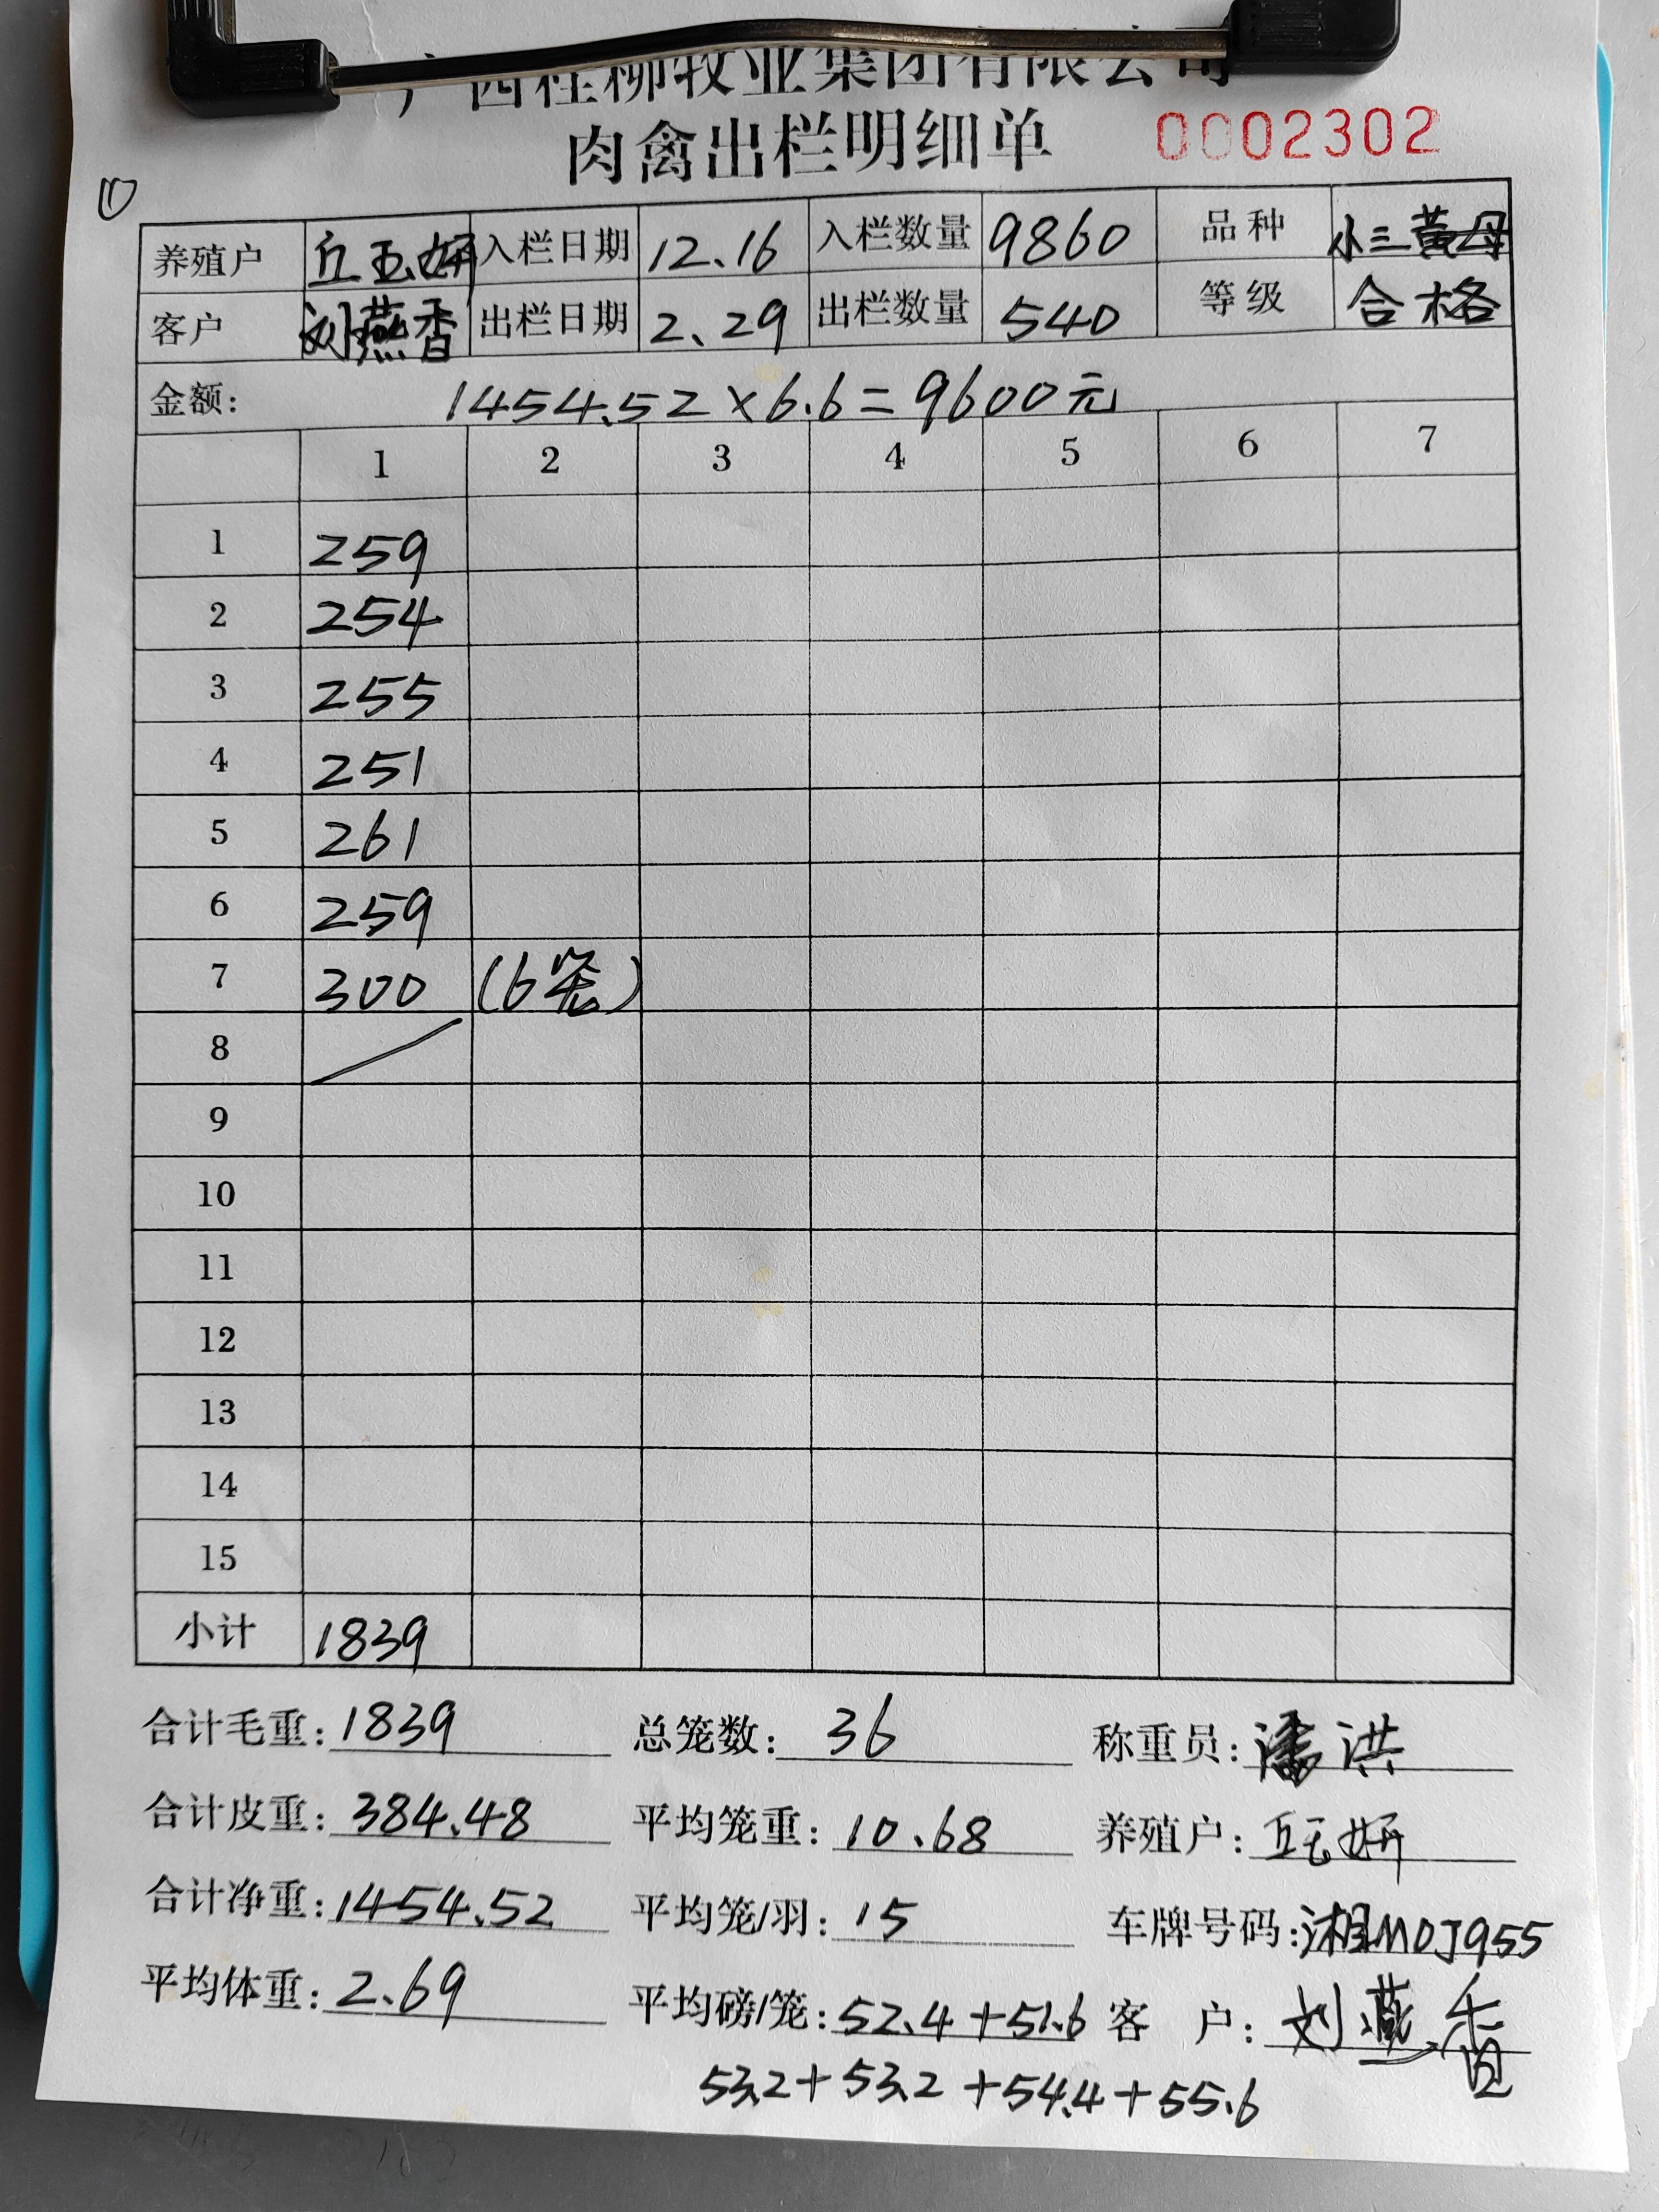 广西桂柳牧业集团有限公司
肉禽出栏明细单 0002302
①
养殖户 丘玉妍 入栏日期 12.16 入栏数量 9860 品种 小三黄母
客户 刘燕香 出栏日期 2.29 出栏数量 540 等级 合格
金额: 1454.52×6.6=9600元
1 2 3 4 5 6 7
1 259
2 254
3 255
4 251
5 261
6 259
7 300 (6笼)
8
9
10
11
12
13
14
15
小计 1839
合计毛重: 1839 总笼数: 36 称重员: 潘洪
合计皮重: 384.48 平均笼重: 10.68 养殖户: 丘玉妍
合计净重: 1454.52 平均笼/羽: 15 车牌号码: 湘M0J955
平均体重: 2.69 平均磅/笼: 52.4+51.6 客 户: 刘燕香
53.2+53.2+54.4+55.6